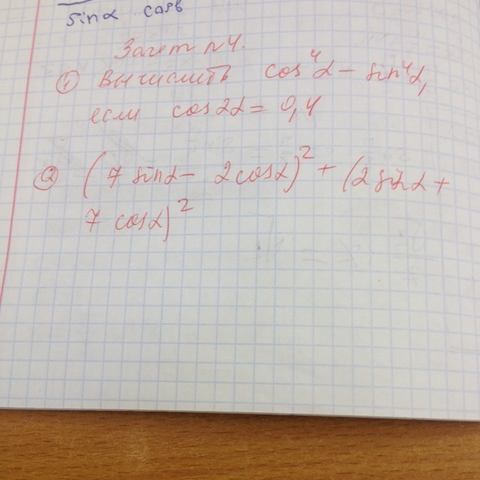 sinα cosβ
Зачет №4.
① Вычислить cos⁴α − sin⁴α,
если cos2α = 0,4
② (7 sinα − 2cosα)² + (2 sinα +
7 cosα)²